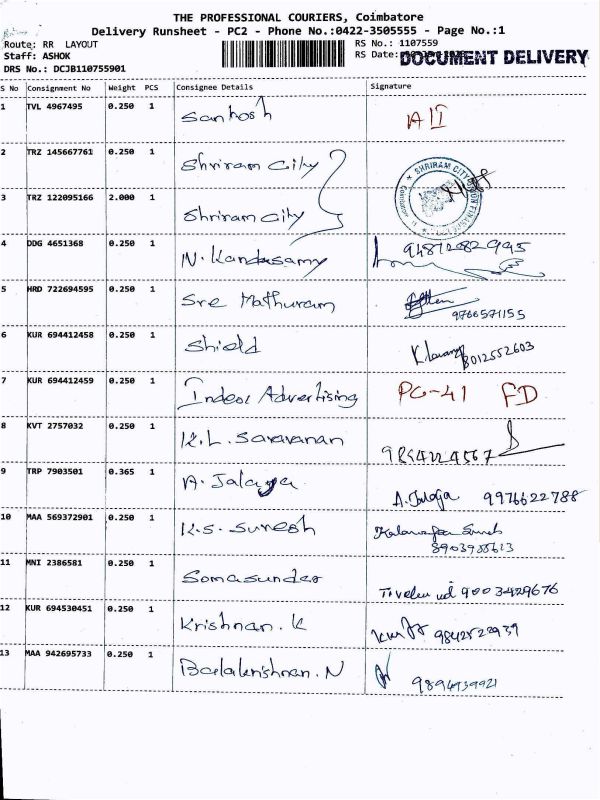 THE PROFESSIONAL COURIERS, Coimbatore
Delivery Runsheet - PC2 - Phone No.:0422-3505555 - Page No.:1
Route: RR LAYOUT
RS No.: 1107559
Staff: ASHOK
RS Date: DOCUMENT DELIVERY
DRS No.: DCJB110755901
S No Consignment No Weight PCS Consignee Details Signature
1 TVL 4967495 0.250 1 Santhosh
2 TRZ 145667761 0.250 1 Shriram City
SHRIRAM CITY UNION FINANCE
3 TRZ 122095166 2.000 1 Shriram City
4 DDG 4651368 0.250 1 N. Kandasamy 9487282995
5 HRD 722694595 0.250 1 Sre Mathuram
9766571155
6 KUR 694412458 0.250 1 Shield 8012552603
7 KUR 694412459 0.250 1 Indeox Advertising PG-41 FD
8 KVT 2757032 0.250 1 K.L. Saravanan
9894224567
9 TRP 7903501 0.365 1 A. Jalaja
9976622788
10 MAA 569372901 0.250 1 K.S. Suresh
11 MNI 2386581 0.250 1 Somasunder
9003429676
12 KUR 694530451 0.250 1 Krishnan. K
9842522939
13 MAA 942695733 0.250 1 Balakrishnan. N
9894939921